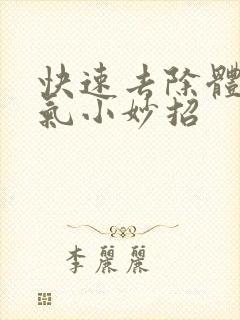 快速去除體
氣小妙招
李麗麗